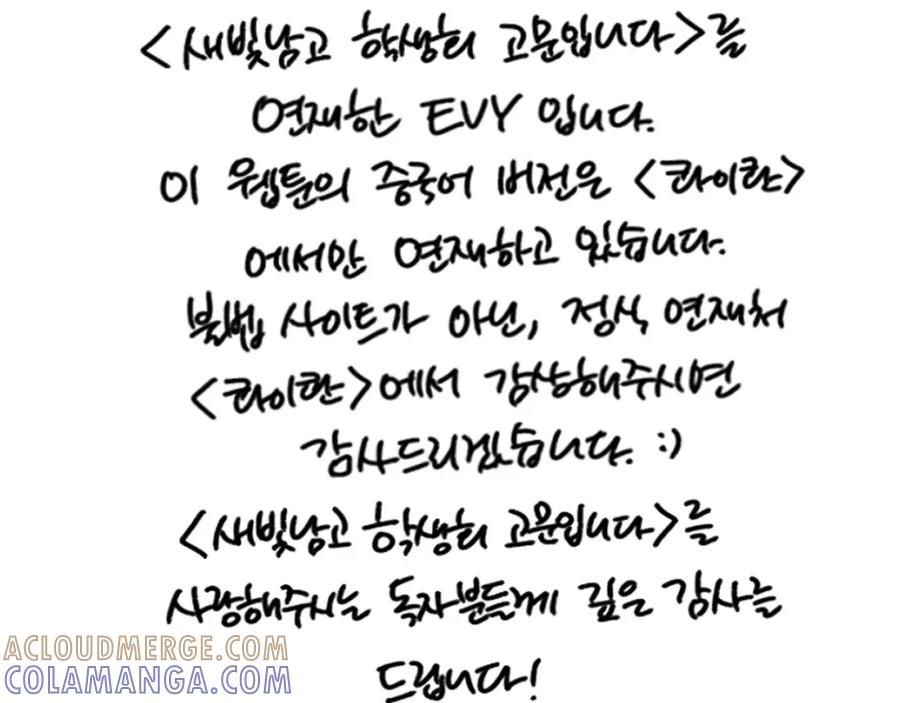 <새빛남고 학생회 고문입니다>를
연재한 EVY 입니다.
이 웹툰의 중국어 버전은 <콰이칸>
에서만 연재하고 있습니다.
불법 사이트가 아닌, 정식 연재처
<콰이칸>에서 감상해주시면
감사드리겠습니다. :)
<새빛남고 학생회 고문입니다>를
사랑해주시는 독자분들께 깊은 감사를
드립니다!
ACLOUDMERGE.COM
COLAMANGA.COM